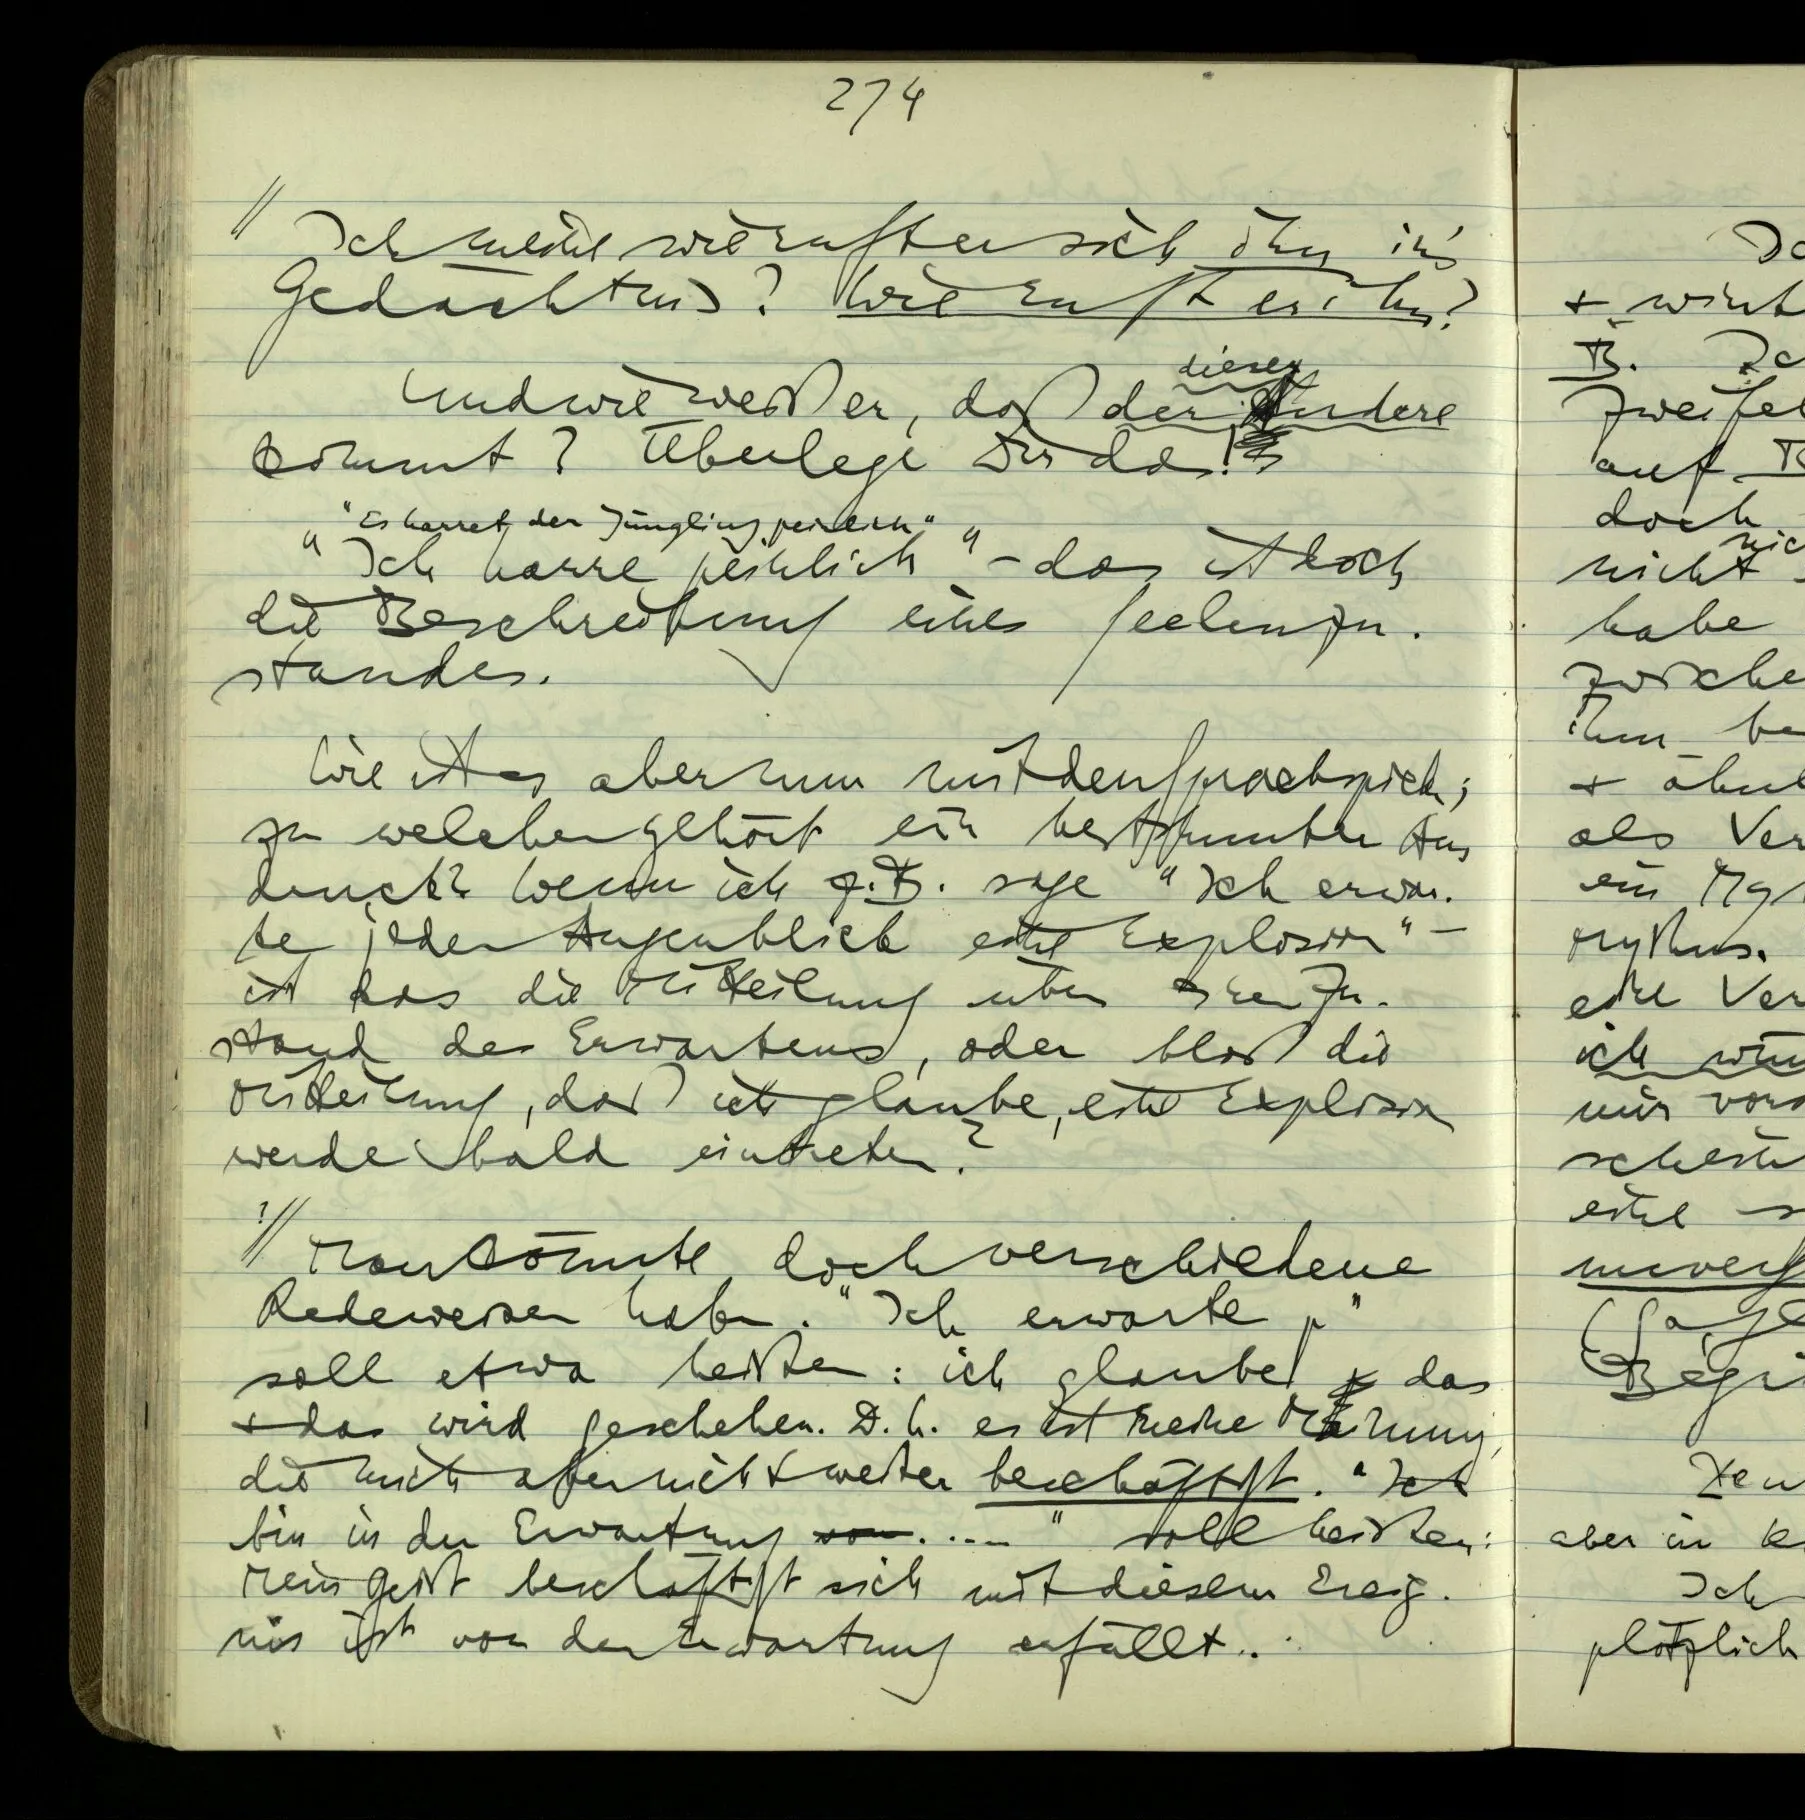 274
// Ich meine wie ruft er sich ihn in's
Gedächtnis? Wie ruft er ihn?
dieser
Und wie weiß er, daß der Andere
kommt? Überlege Dir das!
"Es harret der Jüngling peinlich"
"Ich harre peinlich" – das ist doch
die Beschreibung eines Seelenzu-
standes.
Wie ist es aber nun mit den Sprachspielen;
zu welchen gehört ein bestimmter Aus
druck? Wenn ich z.B. sage "Ich erwar-
te jeden Augenblick eine Explosion" –
ist das die Mitteilung über den Zu-
stand des Erwartens, oder bloß die
Mitteilung, daß ich glaube, eine Explosion
werde bald eintreten?
?// Man könnte doch verschiedene
Redeweisen haben. "Ich erwarte p"
soll etwa heißen: ich glaube, das
+ das wird geschehen. D.h. es ist meine Meinung,
die mich aber nicht weiter beschäftigt. "Ich
bin in der Erwartung .…" soll heißen:
Mein Geist beschäftigt sich mit diesem Ereig-
nis ist von der Erwartung erfüllt..
Ic
+ wirk
B. Ic
zweifel
auf
doch
nic
nicht
habe
zwische
ihm be
+ ähnl
als Ver
ein My
mythus.
eine Ver
ich wü
mir vors
schein
eine s
unverg
(Sage
Begri
aber in k
Ich
plötzlich